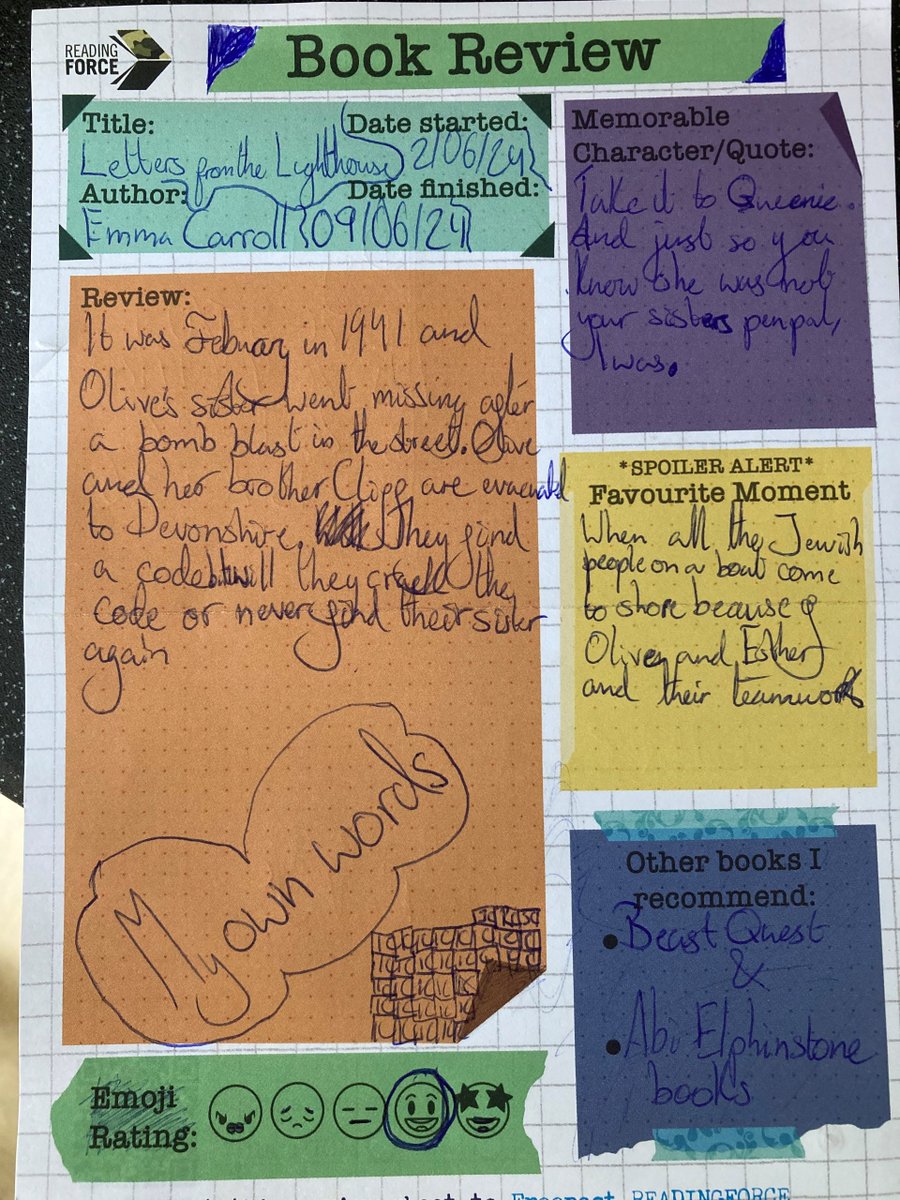 READING
FORCE
Book Review
Title:
Date started:
Letters from the Lighthouse
2/06/24
Author:
Date finished:
Emma Carroll
09/06/24
Memorable
Character/Quote:
Take it to Queenie.
And just so you
know she was not
your sisters penpal,
I was.
Review:
It was Febuary in 1941 and
Olive's sister went missing after
a bomb blast in the street. Olive
and her brother Cliff are evacuated
to Devonshire. They find
a code but will they crack the
code or never find their sister
again
My own words
*SPOILER ALERT*
Favourite Moment
When all the Jewish
people on a boat come
to shore because of
Olive and Esther
and their teamwork
Other books I
recommend:
• Beast Quest
&
• Abi Elphinstone
books
Emoji
Rating:
Freepost READINGFORCE